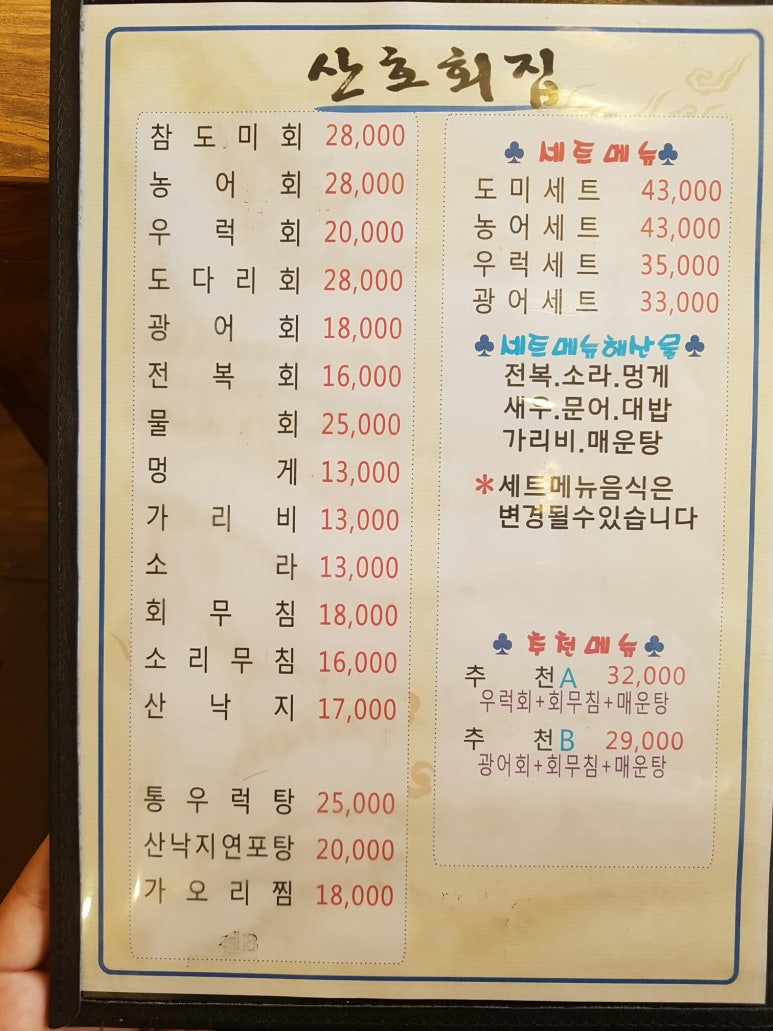 산호회집
참도미회 28,000
농어회 28,000
우럭회 20,000
도다리회 28,000
광어회 18,000
전복회 16,000
물회 25,000
멍게 13,000
가리비 13,000
소라 13,000
회무침 18,000
소리무침 16,000
산낙지 17,000
통우럭탕 25,000
산낙지연포탕 20,000
가오리찜 18,000
♣ 세트메뉴 ♣
도미세트 43,000
농어세트 43,000
우럭세트 35,000
광어세트 33,000
♣ 세트메뉴해산물 ♣
전복.소라.멍게
새우.문어.대밥
가리비.매운탕
*세트메뉴음식은
변경될수있습니다
♣ 추천메뉴 ♣
추천A 32,000
우럭회+회무침+매운탕
추천B 29,000
광어회+회무침+매운탕